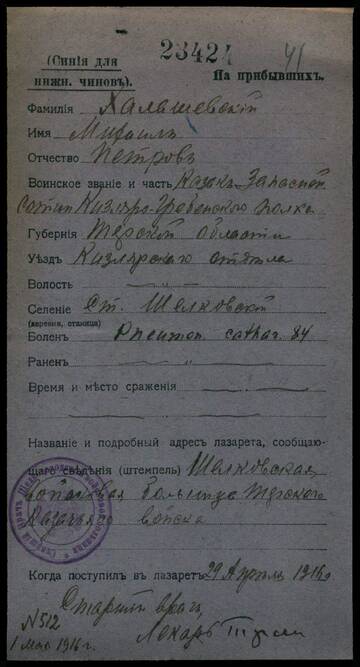 23424 41
(Синія для
нижн. чиновъ).
На прибывшихъ.
Фамилія Халяшевскій
Имя Михаилъ
Отчество Петровъ
Воинское званіе и часть Казакъ Запасной
Сотни Кизляро-Гребенского полка
Губернія Терской области
Уѣздъ Кизлярскаго отдѣла
Волость — „ —
Селеніе Ст. Шелковской
(деревня, станица)
Боленъ Pneumon. cathar. 84
Раненъ — „ —
Время и мѣсто сраженія — „ —
— „ —
Названіе и подробный адресъ лазарета, сообщаю-
щаго свѣдѣнія (штемпель) Шелковская
войсковая больница Терского
Казачьяго войска
Когда поступилъ в лазаретъ 29 Апрѣля 1916 г.
Старшій врач,
Лекарь
N 512
1 мая 1916 г.